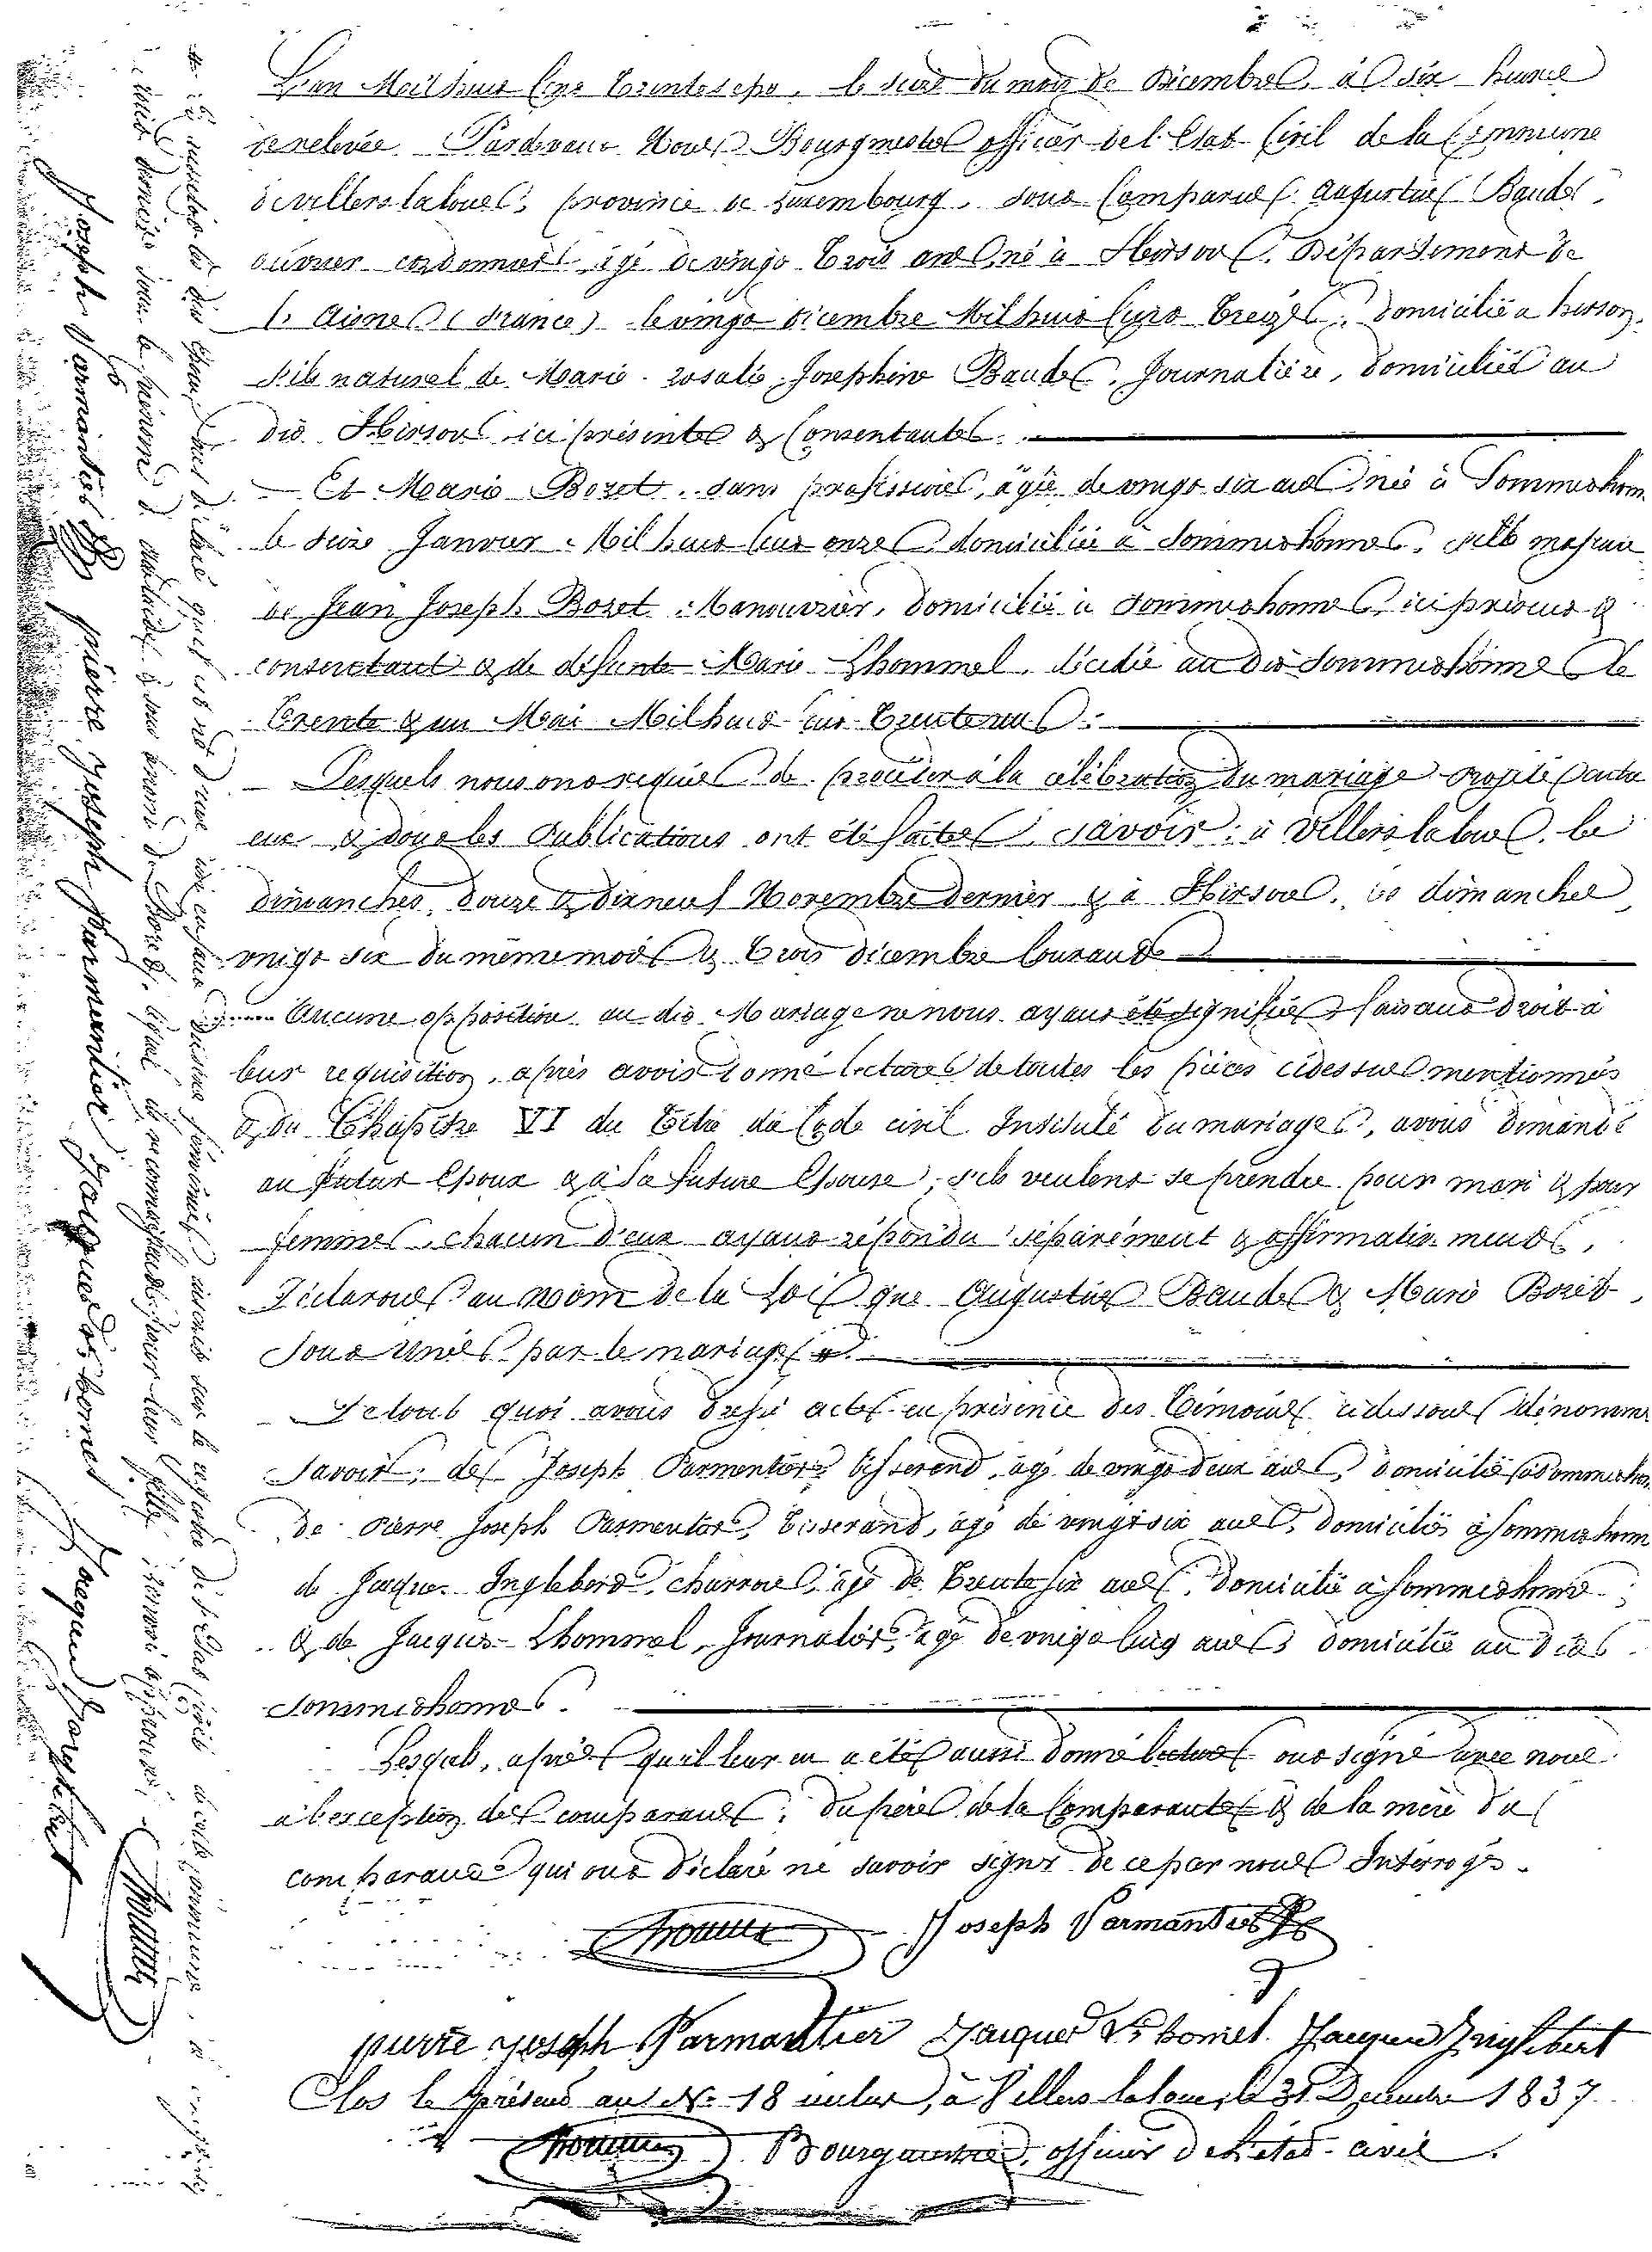 L'an Mil huit Cent Trente sept, le seize du mois de Décembre, à six heures
de relevée, Pardevant Nous Bourgmestre officier de l'Etat Civil de la Commune
de villers la loue, province de Luxembourg, sont Comparus Augustin Baudet,
ouvrier cordonnier, âgé de vingt Trois ans, né à Hirson, Département de
l'Aisne (France) le vingt décembre Mil huit Cent Treize, domicilié à hirson,
fils naturel de Marie rosalie Josephine Baudet, Journalière, domiciliée au
dit Hirson ici présente & Consentante.
Et Marie Bozet, sans profession, âgée de vingt six ans, née à Sommethonne
le seize Janvier Mil huit cent onze, domiciliée à Sommethonne, fille majeure
de Jean Joseph Bozet, Manouvrier, domicilié à Sommethonne, ici présent &
consentant & de défunte Marie Lhommel, décédée au dit Sommethonne le
Trente & un Mai Mil huit cent Trente un.
Lesquels nous ont requis de procéder à la célébration du mariage projeté entre
eux & dont les Publications ont été faites, savoir : à Villers la loue, le
dimanches, douze & dix neuf Novembre dernier & à Hirson, les dimanches
vingt six du même mois & Trois décembre Courant
Aucune opposition au dit Mariage ne nous ayant été signifiée, faisant droit à
leur requisition, après avoir donné lecture de toutes les pièces cidessus mentionnés
& du Chapitre VI du Titre du Code civil Intitulé du mariage, avons demandé
au futur Epoux & à la future Epouse, s'ils veulent se prendre pour mari & pour
femme, chacun d'eux ayant répondu séparément & affirmativement,
Déclarons au nom de la Loi que Augustin Baudet & Marie Bozet
sont unis par le mariage
De tout quoi avons dressé acte en présence des Témoins cidessous dénommés
Savoir : de Joseph Parmentier, tisserand, âgé de vingt deux ans, domicilié à Sommethonne
de Pierre Joseph Parmentier, Tisserand, âgé de vingt six ans, domicilié à Sommethonne
de Jacques Inglebert, charron, âgé de Trente six ans, domicilié à Sommethonne
& de Jacques Lhommel, Journalier, âgé de vingt cinq ans, domicilié au dit
Sommethonne.
Lesquels, après qu'il leur en a été aussi donné lecture ont signé avec nous
à l'exception des comparants, du père de la Comparante & de la mère du
comparant qui ont déclaré ne savoir signer de ce par nous Interrogés.
Joseph Parmantier
pierre joseph Parmantier Jacques Lhomel Jacques Inglebert
Clos le présent au N° 18 inclus, à Villers la loue, le 31 Décembre 1837
Bourgmestre, officier de l'état civil.
Joseph Parmantier pierre joseph Parmentier Jacques Lhomel Jacques Inglebert